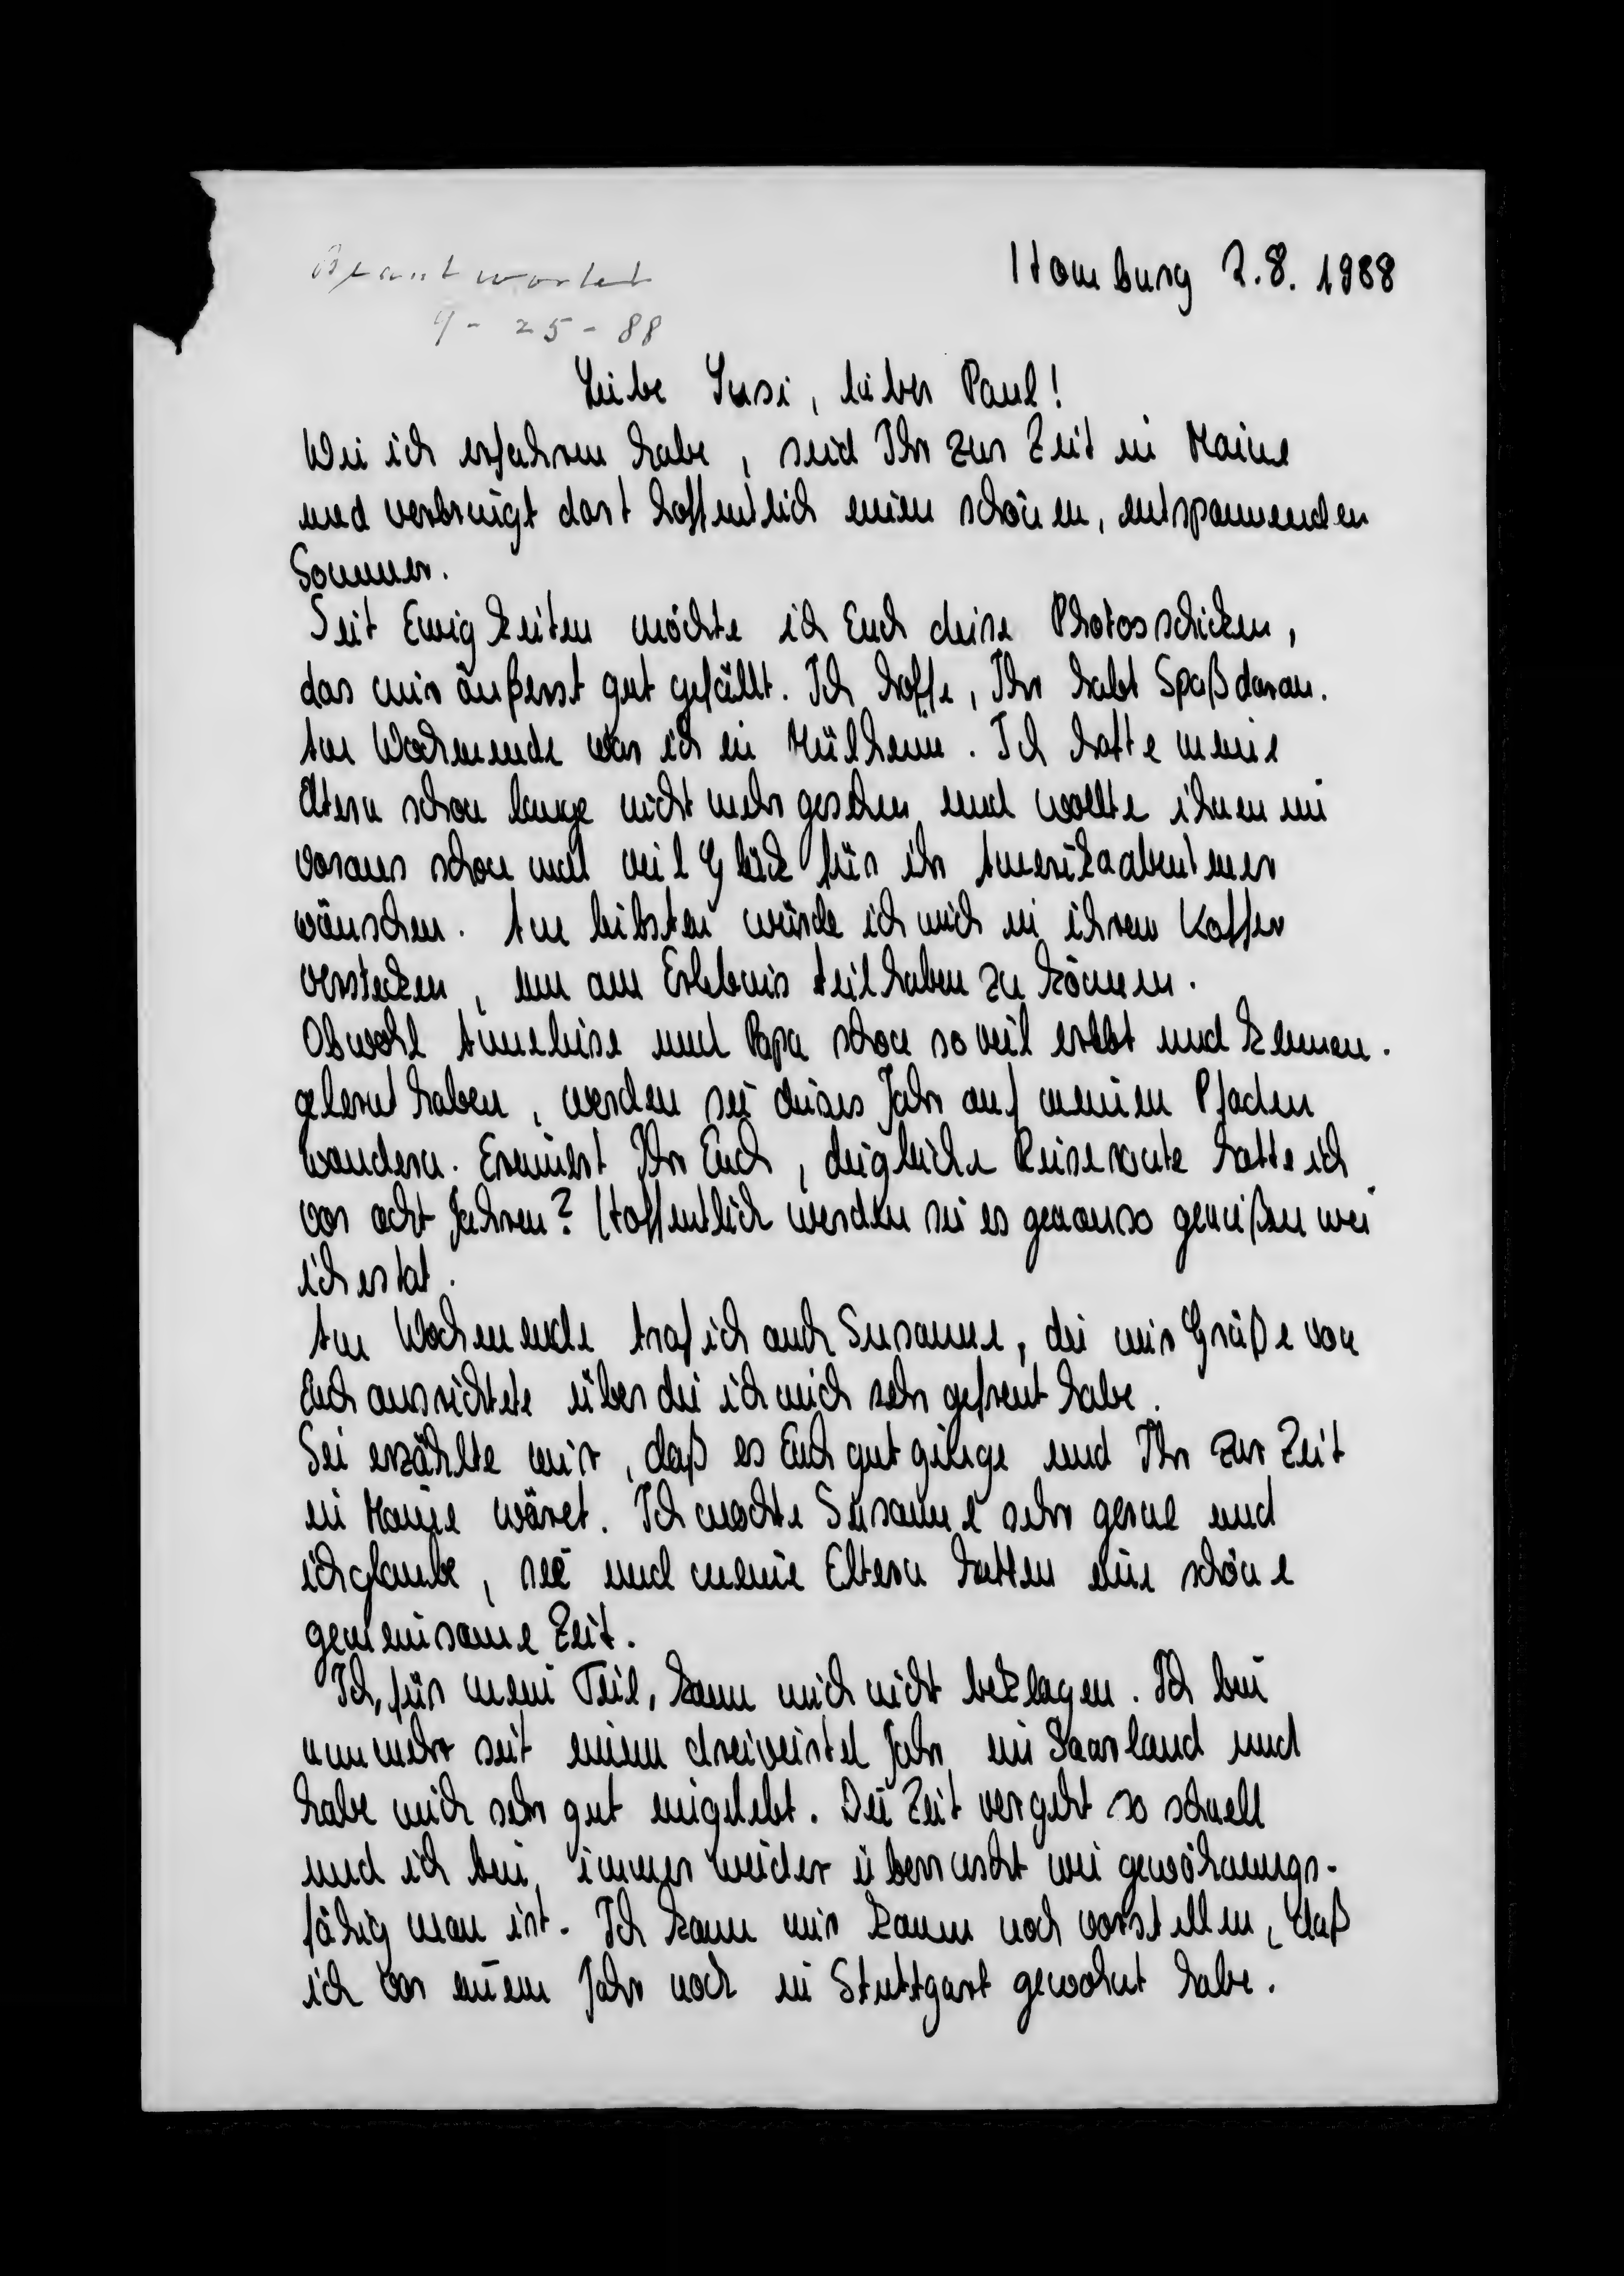 Beantwortet
9-25-88
Homburg 2.8.1988
Liebe Susi, lieber Paul!
Wie ich erfahren habe, seid Ihr zur Zeit in Maine
und verbringt dort hoffentlich einen schönen, entspannenden
Sommer.
Seit Ewigkeiten möchte ich Euch diese Photos schicken,
das mir äußerst gut gefällt. Ich hoffe, Ihr habt Spaß daran.
Am Wochenende war ich in Mülheim. Ich hatte meine
Eltern schon lange nicht mehr gesehen und wollte ihnen im
voraus schon mal viel Glück für ihr Amerikaabenteuer
wünschen. Am liebsten würde ich mich in ihrem Koffer
verstecken, um am Erlebnis teilhaben zu können.
Obwohl Anneliese und Papa schon so viel erlebt und kennen-
gelernt haben, werden sie dieses Jahr auf meinen Pfaden
wandern. Erinnert Ihr Euch, die gleiche Reiseroute hatte ich
vor acht Jahren? Hoffentlich werden sie es genauso genießen wie
ich es tat.
Am Wochenende traf ich auch Susanne, die mir Grüße von
Euch ausrichtete über die ich mich sehr gefreut habe.
Sie erzählte mir, daß es Euch gut ginge und Ihr zur Zeit
in Maine wäret. Ich mochte Susanne sehr gerne und
ich glaube, sie und meine Eltern hatten eine schöne
gemeinsame Zeit.
Ich, für mein Teil, kann mich nicht beklagen. Ich bin
nunmehr seit einem dreiviertel Jahr im Saarland und
habe mich sehr gut eingelebt. Die Zeit vergeht so schnell
und ich bin immer wieder überrascht wie gewöhnungs-
fähig man ist. Ich kann mir kaum noch vorstellen, daß
ich vor einem Jahr noch in Stuttgart gewohnt habe.